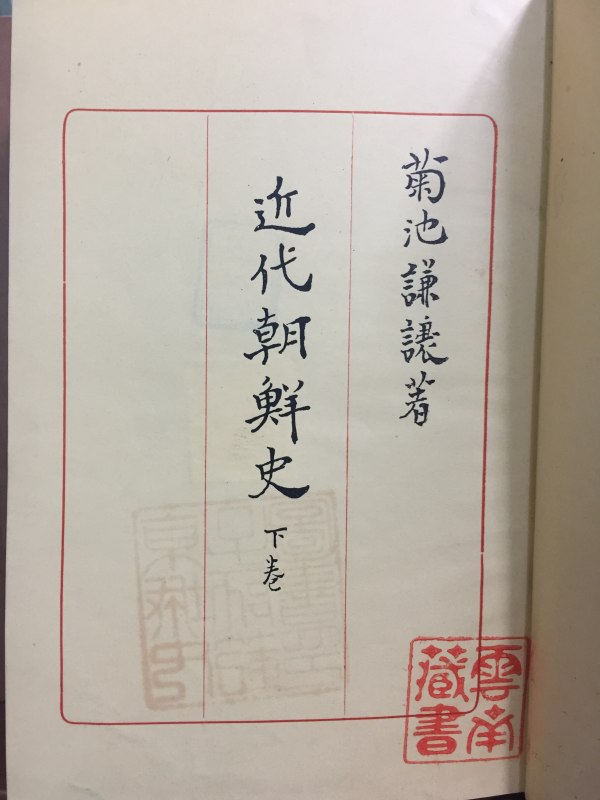 菊池謙讓著
近代朝鮮史 下巻
雲南
藏書